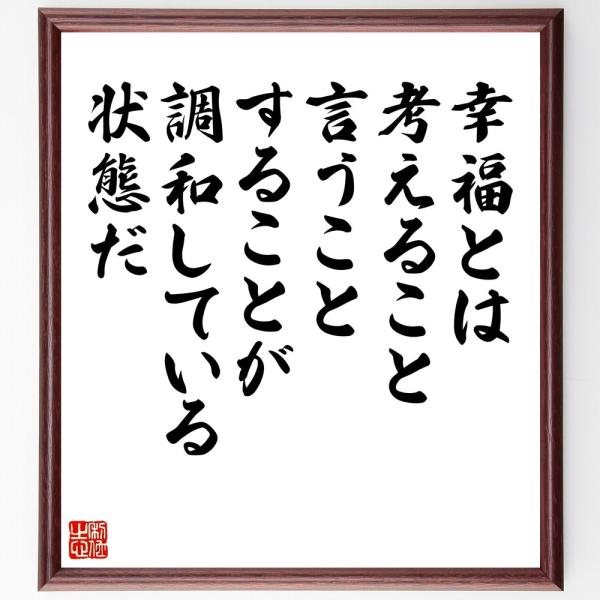 幸福とは
考えること
言うこと
することが
調和している
状態だ